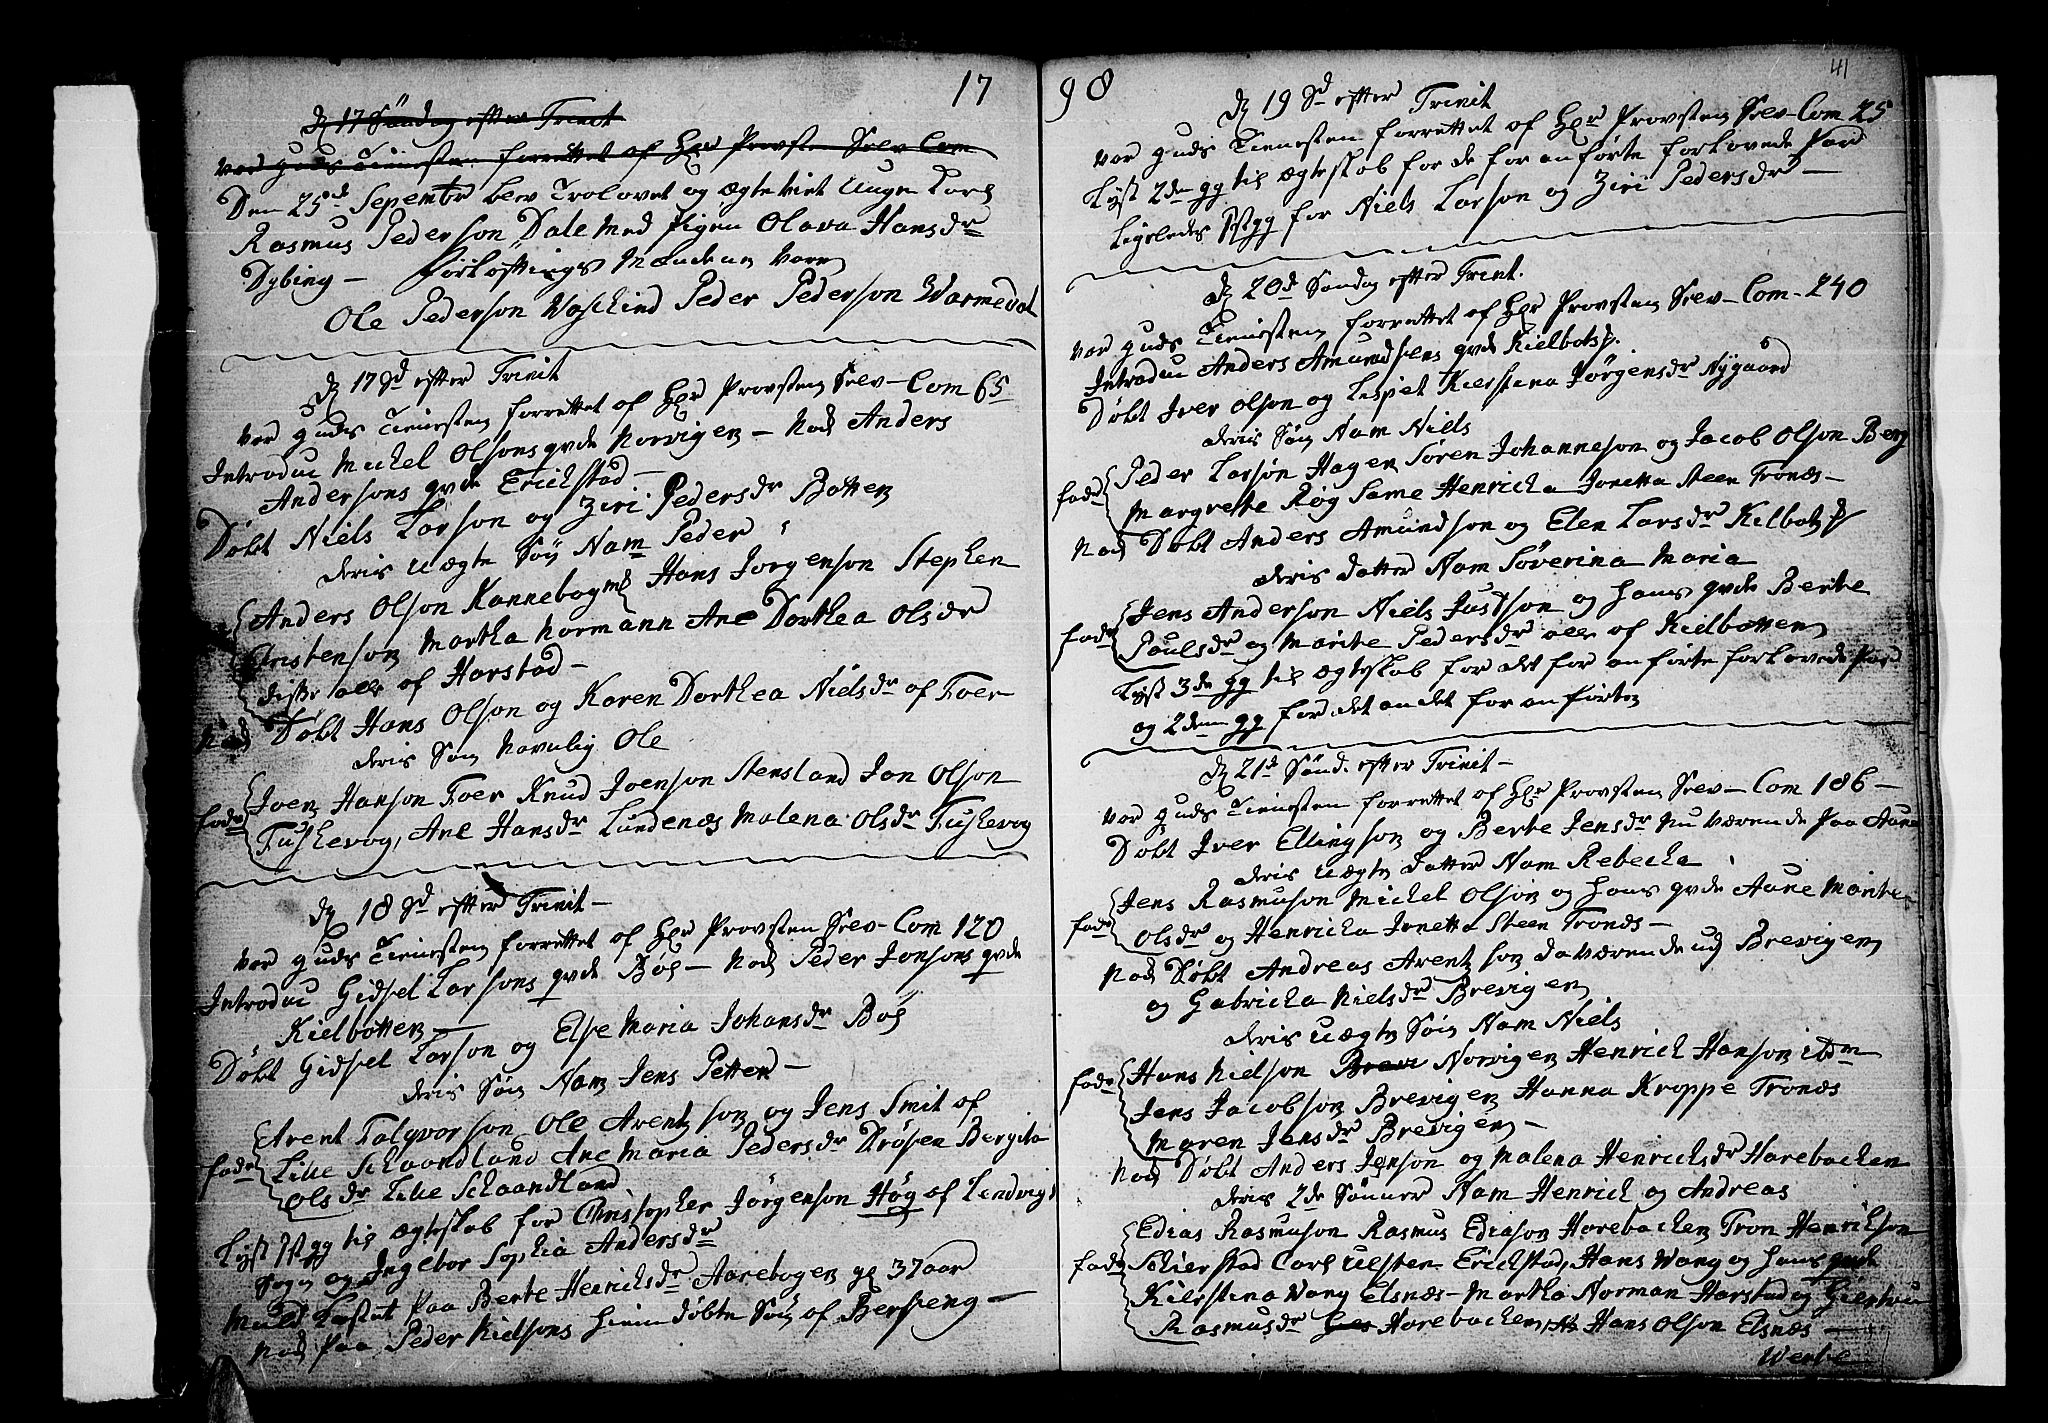 17
d 17 Söndag efter Trinit
var guds Tienesten forrettet af Hr Provsten Srev Com
Den 25d Sepembr blev Trolovet og ægteviet Unge Karl
Rasmus Pederson Dale med Pigen Olava Hansdr
Dybing – forlovtings Mændene vare
Ole Pederson Peder Pederson Warmedal
d 17 Sd efter Trinit
var guds Tienesten forrettet af Hr Provsten Srev – Com 65
Introdu Mickel Olsons qvde Norvigen – Nok Anders
Andersons qvde Erickstad –
Døbt Niels Larson og Ziri Pedersdr Botten
deris uægte Søn Nam Peder
Anders Olson Kannebogen Hans Jorgenson Stephen
Cristenson Martha Normann Ane Dorthea Olsdr
disse alle af Harstad –
Nok Døbt Hans Olson og Karen Dorthea Nielsdr af Foer
deris Søn Navnlig Ole
fadr Joen Hanson Foer Knud Joenson Stensland Jon Olson
Fuskevog, Ane Hansdr Lundenæs Malena Olsdr Fuskevog
d 18 Sd efter Trinit –
var guds Tienesten forrettet af Hr Provsten Srev – Com 120
Introdu Gidsel Larsons qvde Bøe – Nok Peder Jonsons qvde
Kielbotten –
Døbt Gidsel Larson og Else Maria Johansdr Bøe
deris Søn Nam Jens Petter –
fadr Arent Tolgvorson Ole Arentzson og Jens Smit af
Lille Schaandland Ane Maria Pedersdr Drøsen Bergita
Olsdr Lille Schaandland
Lyst 1st gg til ægteskab for Christopher Jørgenson Høg af Lendvigs
Sogn og Ingebor Sophia Andersdr
Muld kastet paa Berte Heinrichsdr Aarebogen gl 37 aar
Nok paa Peder Nielsons hiemdøbte Søn af Berseng –
98
41
d 19 Sd efter Trinit
var guds Tienesten forrettet af Hr Provsten Srev – Com 25
Lyst 2den gg til ægteskab for de for anførte forlovede Par
Ligeledes 1st gg for Niels Larson og Ziri Pedersdr –
d 20d Søndag efter Trint.
var guds Tienesten forrettet af Hr Provsten Srev – Com – 240
Introdu Anders Amundsens qvde Kielbotn.
Døbt Iver Olson og Lispet Kierstina Jørgensdr Nygaard
deris Søn Nam Niels
fadr Peder Larson Hagen Sören Johanneson og Jacob Olson Berg
Margrethe Røg Same Henricka Jonetta Steen Tronæs –
Nok Døbt Anders Amundson og Elen Larsdr Kilbotn
deris Datter Nam Söverina Maria
fadr Jens Anderson Niels Justson og hans qvde Berte
Paulsdr og Marite Pedersdr alle af Kielbotten
Lyst 3de gg til ægteskab for det for anførte forlovede Par
og 2den gg for det andet for anførte
d 21d Sönd. efter Trinit –
var guds Tienesten forrettet af Hr Provsten Srev – Com 186 –
Døbt Iver Ellingson og Berte Jensdr nu værende paa Aune
deris uægte Datter Nam Rebecka
fadr Jens Rasmuson Mickel Olson og hans qvde Aune Marite
Olsdr og Henricka Jonetta Steen Tronæs –
Nok Døbt Andreas Arentzson da værende ud Brevigen
og Gabricka Nielsdr Brevigen
deris uægte Søn Nam Niels
fadr Hans Nielson Brevi Norvigen Henrick Hanson ibm
Jens Jacobson Brevigen Hanna Kroppe Tronæs
Maren Jensdr Brevigen –
Nok Døbt Anders Jenson og Malena Henricksdr Harebacken
deris 2de Sønner Nam Henrick og Andreas
fadr Edias Rasmuson Rasmus Ediason Harebacken Tron Henrikson
Schierstad Carl Ulsten Erickstad, Hans Wang og hans qvde
Kierstina Wang Elsnæs – Martha Norman Harstad og Giertru
Rasmusdr Harebacken, Hans Olson Elsnæs –